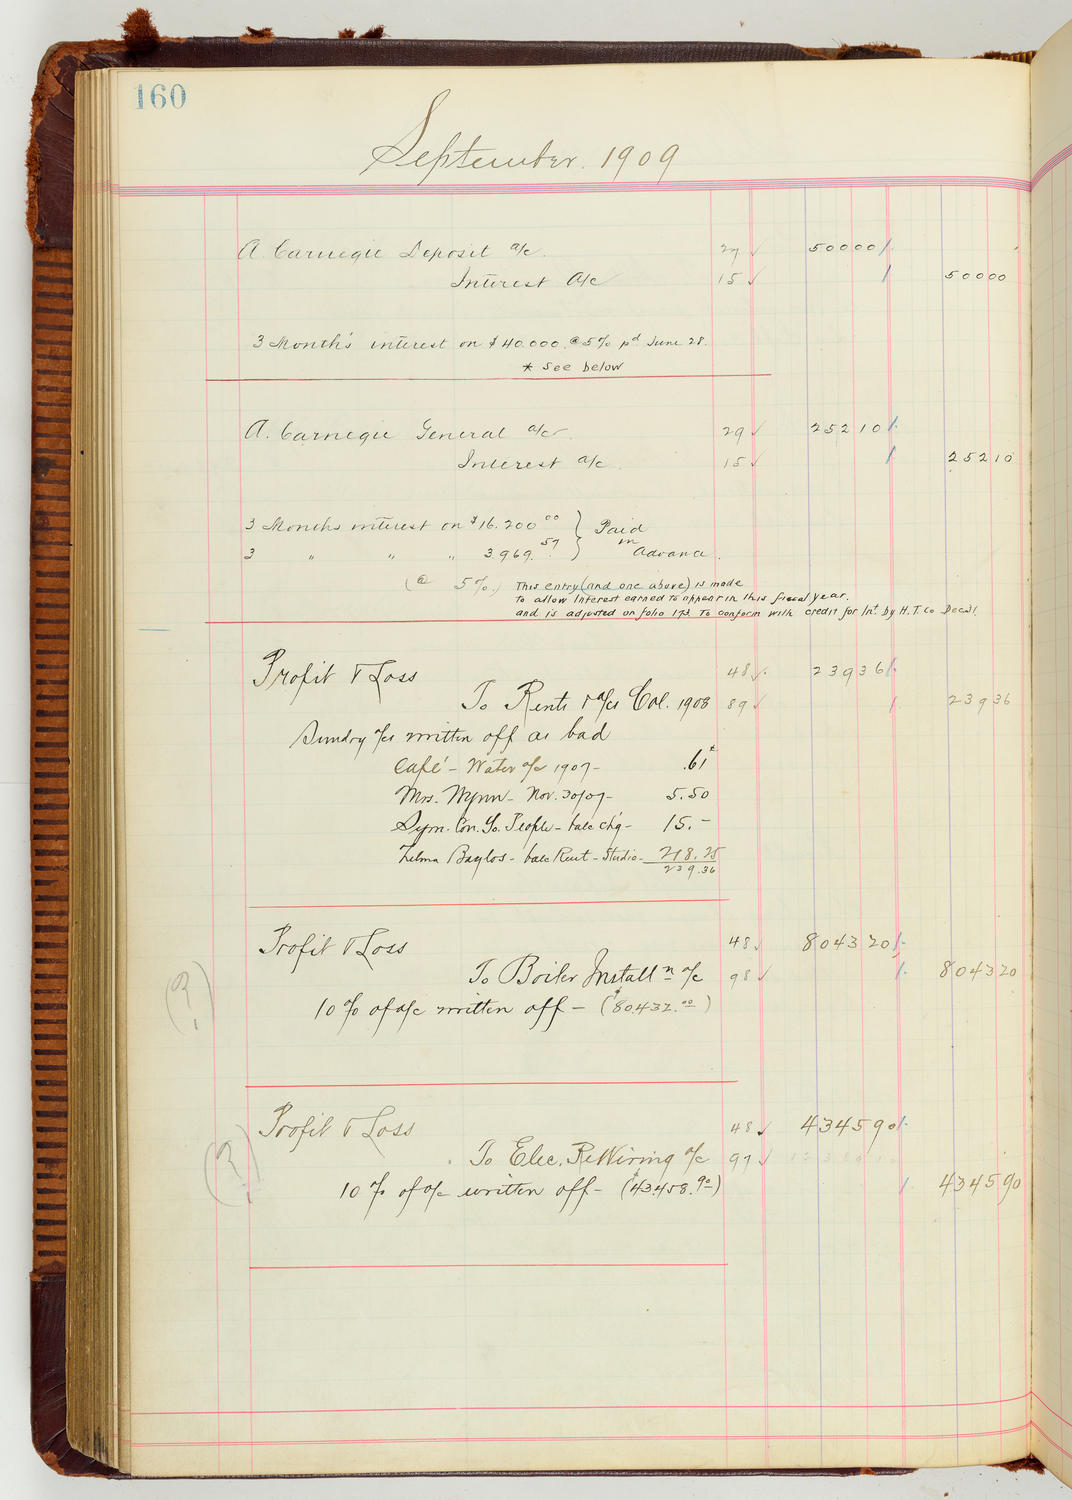 160
September. 1909
A. Carnegie Deposit a/c. 27 ✓ 50000
Interest a/c 15 ✓ 50000
3 Month's interest on $40.000. @ 5% pd June 28.
* See below
A. Carnegie General a/c 29 ✓ 25210
Interest a/c. 15 ✓ 25210
3 Months interest on $16.200 00 } Paid
3 " " " 3.969. 57 } in Advance.
(@ 5%.) This entry (and one above) is made
to allow Interest earned to appear in this fiscal year.
and is adjusted on folio 173. To conform with credit for Int. by H.T. Co Dec 31.
Profit & Loss 48 ✓ 23936
To Rents & a/cs Col. 1908 89 ✓ 23936
Sundry a/cs written off as bad
Café - Water a/c 1907 - .61
Mrs. Wynn - Nov. 30/07 - 5.50
Sym. Con. Yo. People - balc chg - 15.-
Zelma Baylos - balc Rent - Studio - 218.25
239.36
Profit & Loss 48 ✓ 804320
To Boiler Installn a/c 98 ✓ 804320
(?) 10% of a/c written off - ($80.432.00)
Profit & Loss 48 ✓ 434590
(?) To Elec. ReWiring a/c 97 ✓
10% of a/c written off - ($43.458.90) 434590